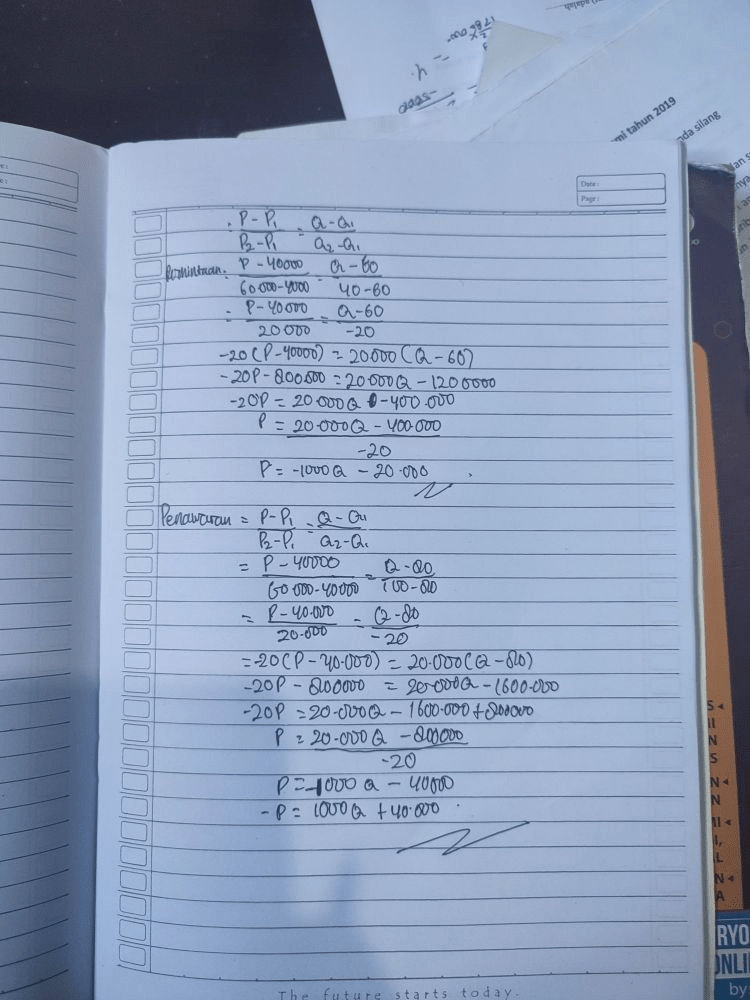 Date :
Page :
mi tahun 2019
nda silang
P - P₁ / P₂ - P₁ = Q - Q₁ / Q₂ - Q₁
Permintaan = P - 40000 / 60.000 - 4000 = Q - 60 / 40 - 60
= P - 40000 / 20000 = Q - 60 / -20
-20 (P - 40000) = 20000 (Q - 60)
-20P - 800.000 = 20.000Q - 1200000
-20P = 20.000Q - 400.000
P = 20.000Q - 400.000 / -20
P = -1000Q - 20.000
Penawaran = P - P₁ / P₂ - P₁ = Q - Q₁ / Q₂ - Q₁
= P - 40000 / 60.000 - 40000 = Q - 80 / 100 - 80
= P - 40.000 / 20.000 = Q - 80 / -20
= -20 (P - 40.000) = 20.000 (Q - 80)
-20P - 800000 = 20.000Q - 1600.000
-20P = 20.000Q - 1600.000 + 800000
P = 20.000Q - 800000 / -20
P = -1000Q - 40000
-P = 1000Q + 40.000
The future starts today.
RYO
ONLIN
by